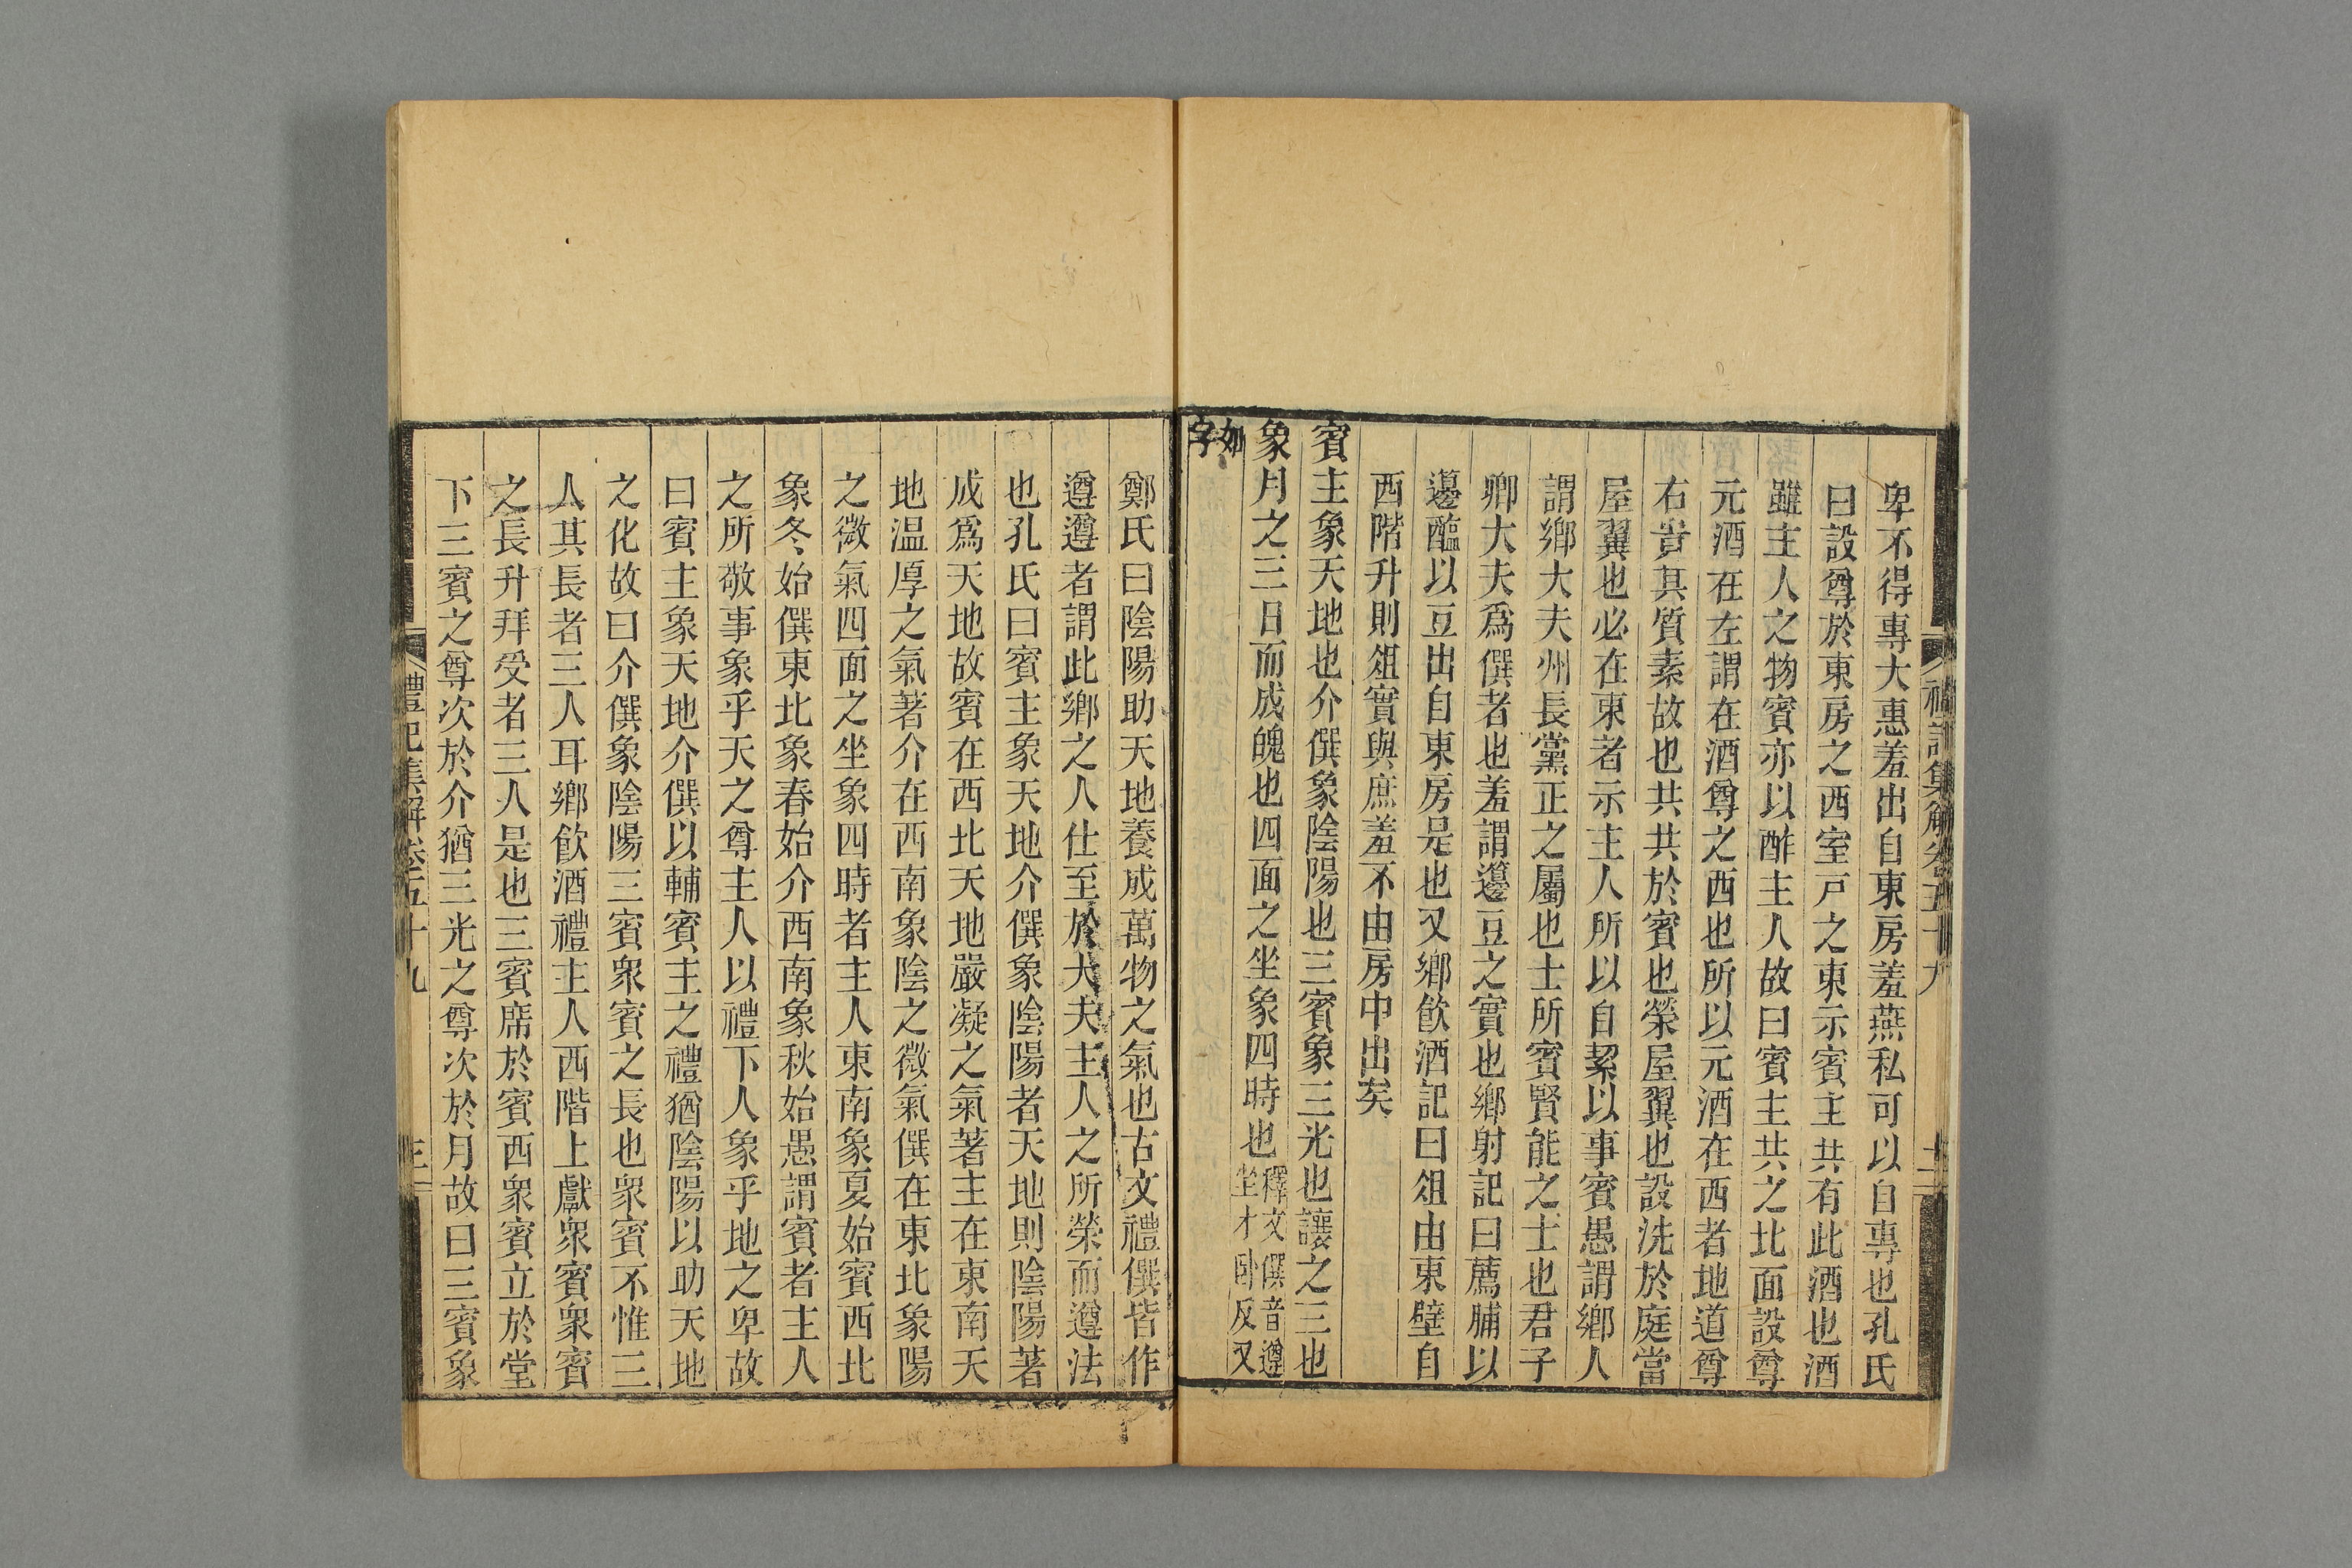 禮記集解卷五十九
卑不得專大惠羞出自東房羞燕私可以自專也孔氏
曰設尊於東房之西室戸之東示賓主共有此酒也酒
雖主人之物賓亦以酢主人故曰賓主共之北面設尊
元酒在左謂在酒尊之西也所以元酒在西者地道尊
右貴其質素故也共共於賓也榮屋翼也設洗於庭當
屋翼也必在東者示主人所以自絜以事賓愚謂鄉人
謂鄉大夫州長黨正之屬也士所賓賢能之士也君子
卿大夫爲僎者也羞謂籩豆之實也鄉射記曰薦脯以
籩醢以豆出自東房是也又鄉飲酒記曰俎由東壁自
西階升則俎實與庶羞不由房中出矣
賓主象天地也介僎象陰陽也三賓象三光也讓之三也
象月之三日而成魄也四面之坐象四時也釋文僎音遵
坐才卧反又
如
字
鄭氏曰陰陽助天地養成萬物之氣也古文禮僎皆作
遵遵者謂此鄉之人仕至於大夫主人之所榮而遵法
也孔氏曰賓主象天地介僎象陰陽者天地則陰陽著
成爲天地故賓在西北天地嚴凝之氣著主在東南天
地温厚之氣著介在西南象陰之微氣僎在東北象陽
之微氣四面之坐象四時者主人東南象夏始賓西北
象冬始僎東北象春始介西南象秋始愚謂賓者主人
之所敬事象乎天之尊主人以禮下人象乎地之卑故
曰賓主象天地介僎以輔賓主之禮猶陰陽以助天地
之化故曰介僎象陰陽三賓衆賓之長也衆賓不惟三
人其長者三人耳鄉飲酒禮主人西階上獻衆賓衆賓
之長升拜受者三人是也三賓席於賓西衆賓立於堂
下三賓之尊次於介猶三光之尊次於月故曰三賓象
禮記集解卷五十九
三